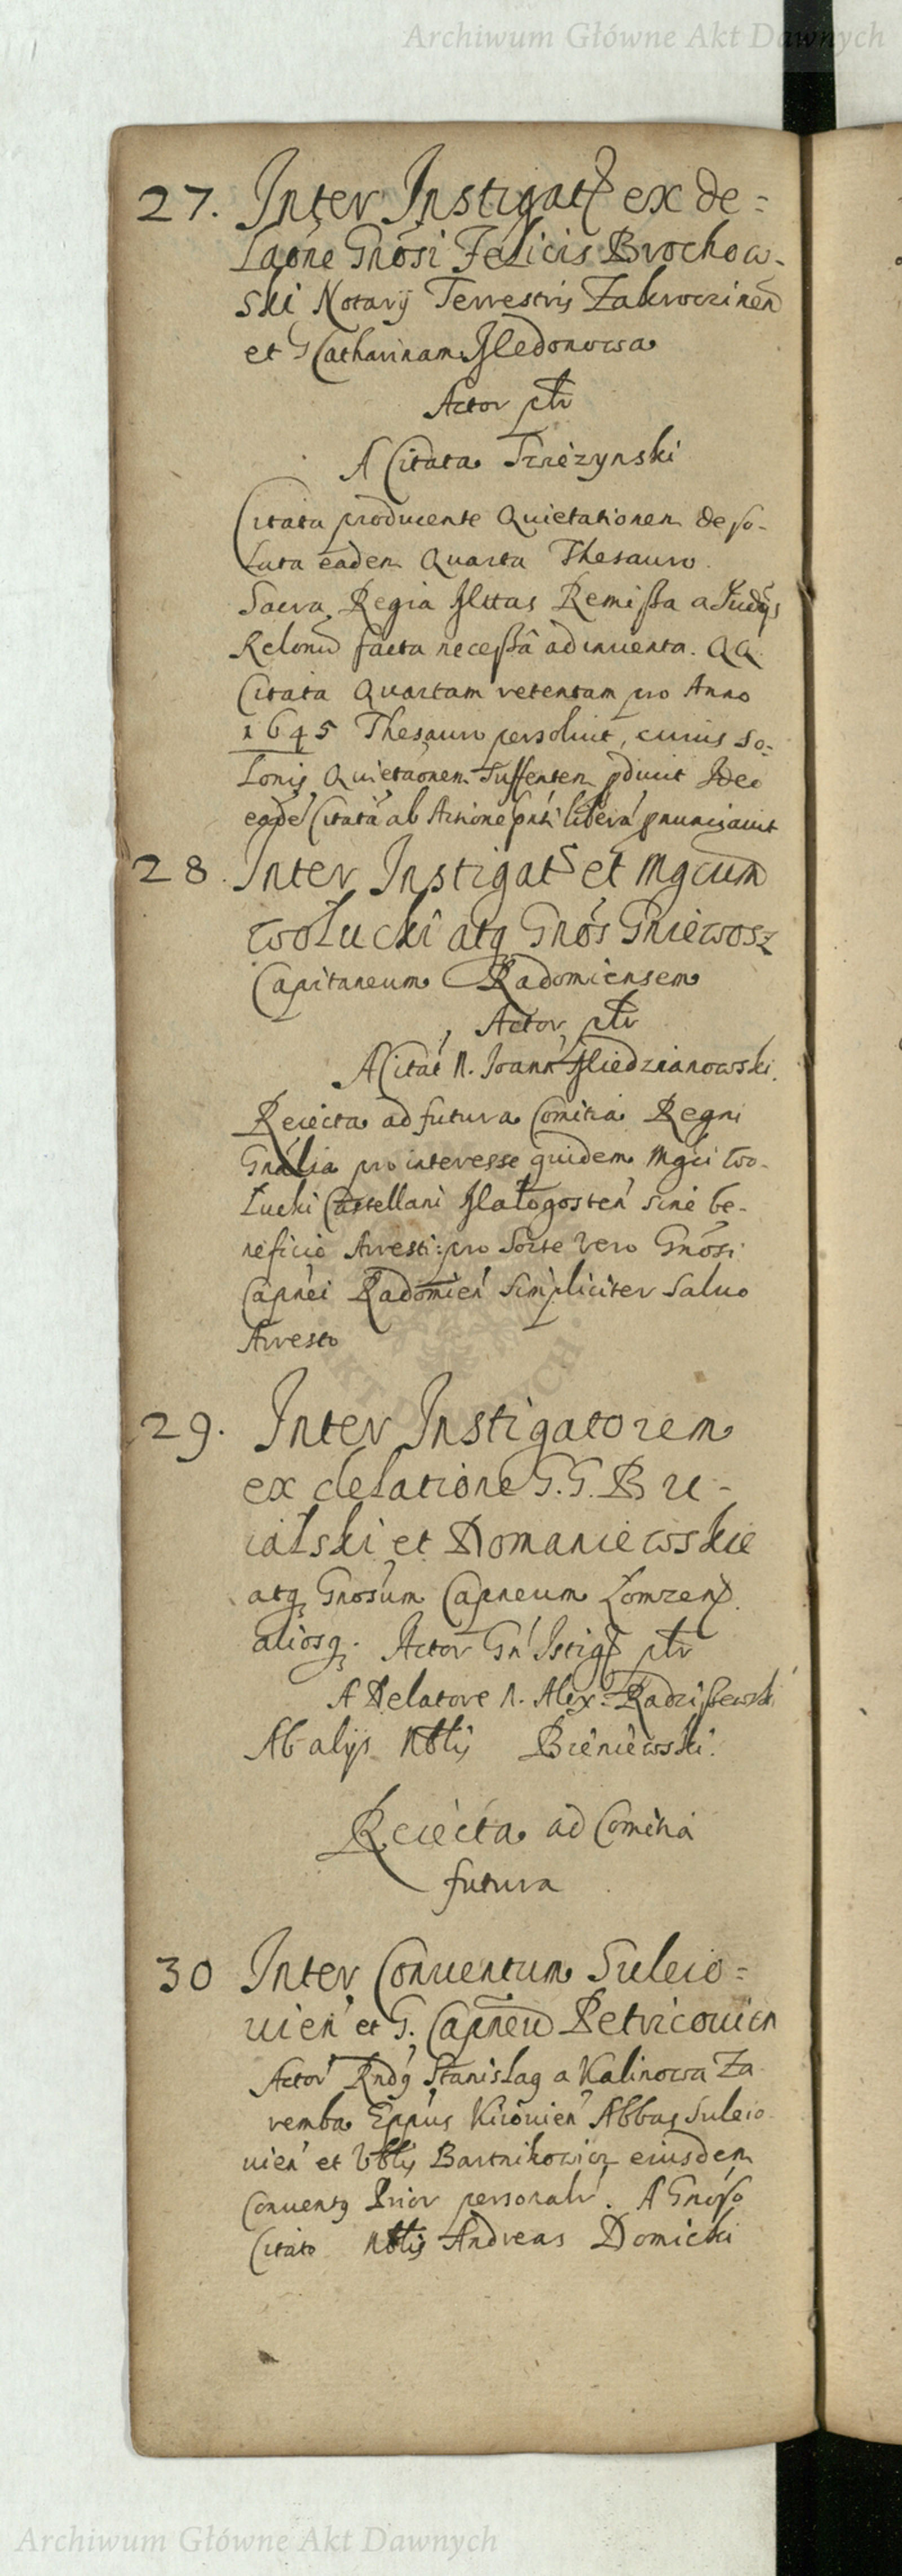 Archiwum Główne Akt Dawnych
27. Inter Instigat ex de=
laóne Gnósi Felicis Brochow-
ski Notarÿ Terrestris Zakroczinen
et G Catharinam
Actor ptr
A Citata
Citata producente Quietationem de so-
luta eadem Quarta Thesauro.
Sacra Regia Mttas Remissa a Judÿs
Relonu facta necessâ adinuenta. QQ
Citata Quartam retentam pro Anno
1645 Thesauro persoluit, cuius so=
lonis Quietaonem pduxit Ideo
eande Citata ab Actione pnti libera pnunciauit
28. Inter Instigat et Mgcum
Wołucki atq Gnós Gniewosz
Capitaneum Radomiensem
Actor ptr
A Citat N. Joann Miedzianowski.
Reiecta ad futura Comitia Regni
Gnàlia pro interesse quidem Mgci Wo-
łucki Castellani Małogosten sine be-
neficio Arresti: pro Sorte vero Gnósi
Capnei Radomien simpliciter saluo
Arresto
29. Inter Instigatorem
ex delatione G. G. Bu-
ialski et Domaniewskie
atq Gnosum Capneum Lomzen
aliosq. Actor Gn Istig ptr
A Delatore N. Alex= Radziszewski
Ab alÿs Nblis Bieniewski.
Reiecta ad Comitia
futura
30 Inter Conuentum Suleio=
uien et G. Capneu Petricouien
Actor Rndq Stanislaq a Kalinowa Za
remba Eppus Kiiouien Abbas Suleio
uien et Vblis Bartnikowicz eiusdem
Conuentq Prior personalr. A Gnóso
Citato Nblis Andreas Domicki
Archiwum Główne Akt Dawnych